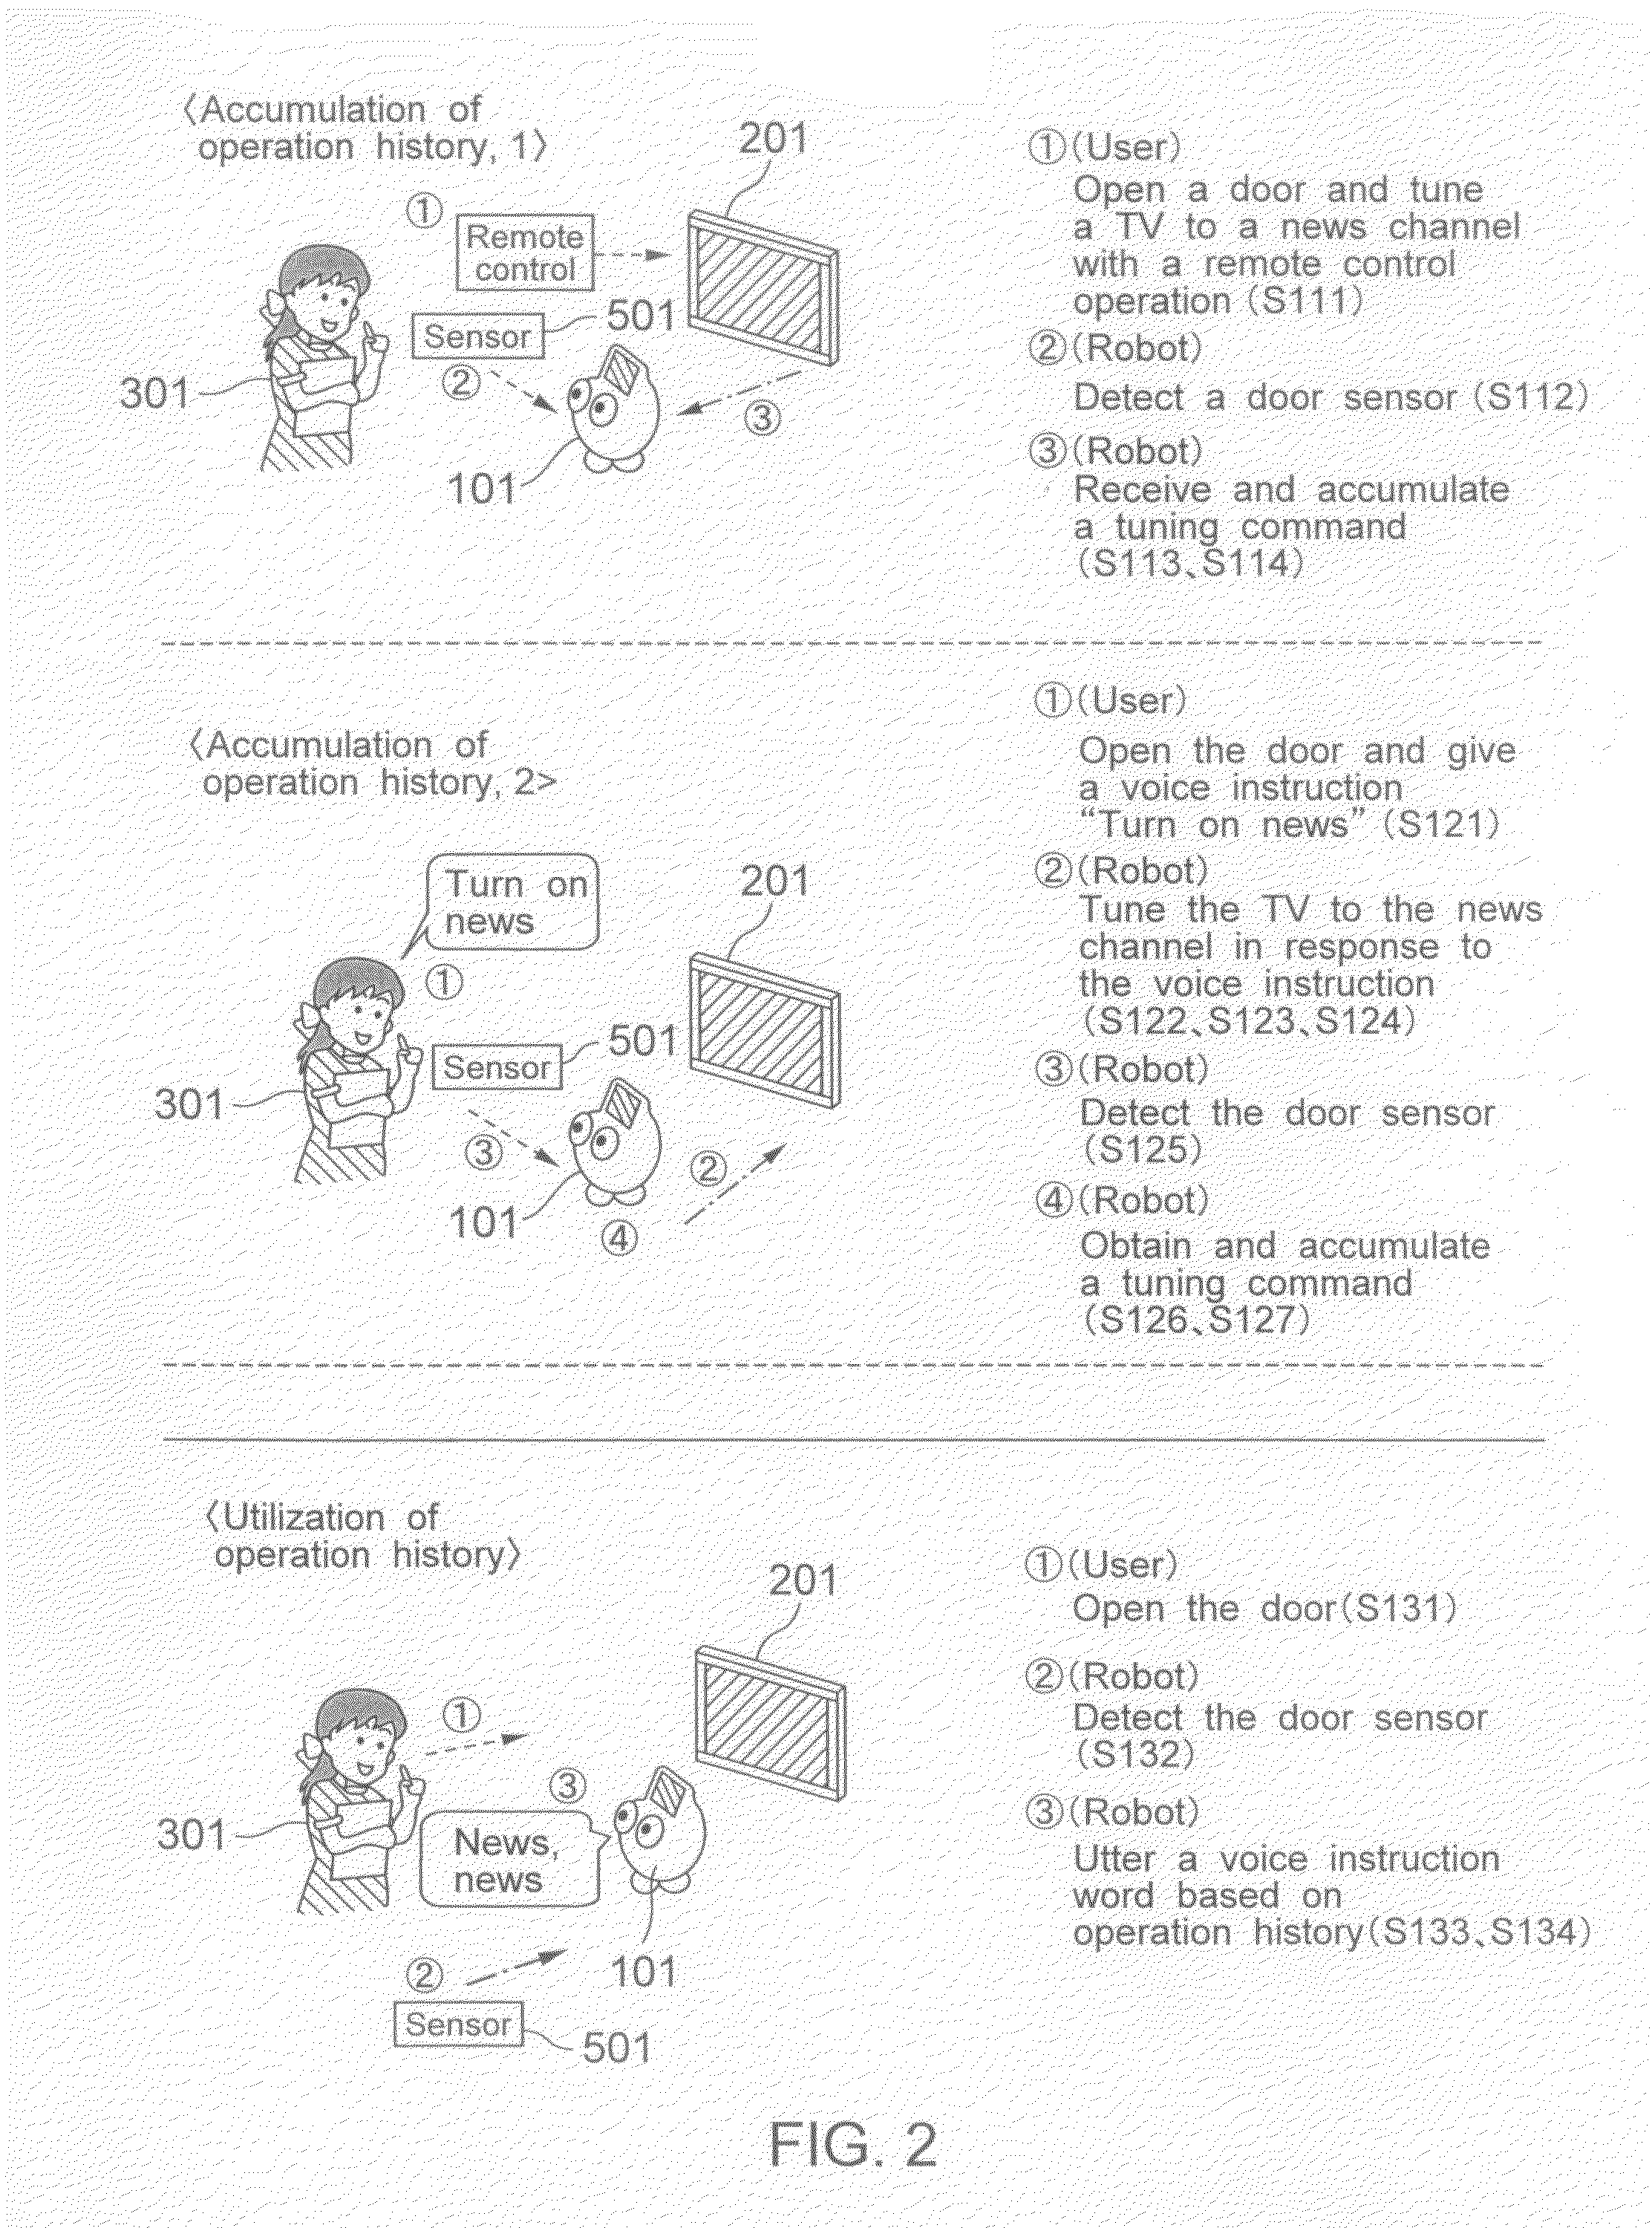 〈Accumulation of
operation history, 1〉
201
①
Remote
control
501
Sensor
②
301
③
101
①(User)
Open a door and tune
a TV to a news channel
with a remote control
operation (S111)
②(Robot)
Detect a door sensor (S112)
③(Robot)
Receive and accumulate
a tuning command
(S113、S114)
〈Accumulation of
operation history, 2>
Turn on
news
201
①
501
Sensor
301
③
②
101
④
①(User)
Open the door and give
a voice instruction
“Turn on news” (S121)
②(Robot)
Tune the TV to the news
channel in response to
the voice instruction
(S122、S123、S124)
③(Robot)
Detect the door sensor
(S125)
④(Robot)
Obtain and accumulate
a tuning command
(S126、S127)
〈Utilization of
operation history〉
201
①
③
301
News,
news
101
②
Sensor
501
①(User)
Open the door(S131)
②(Robot)
Detect the door sensor
(S132)
③(Robot)
Utter a voice instruction
word based on
operation history(S133、S134)
FIG. 2